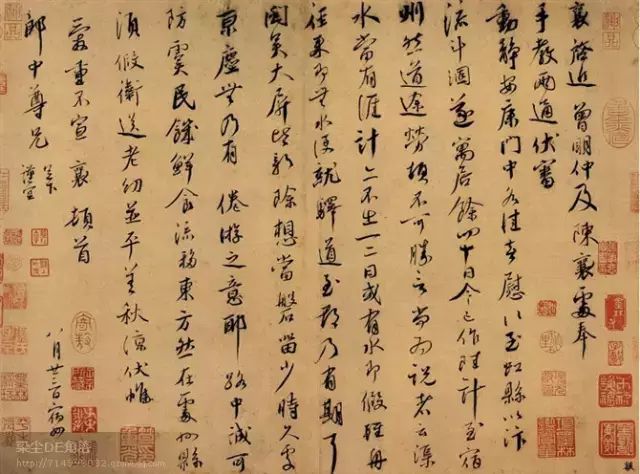 襄啓近曾明仲及陳襄處奉
手教兩通伏審
動靜安康門中各佳喜慰〻至虹縣以汴
流斗涸遂寓居餘四十日今已作陸計至宿
州然道途勞頓不可勝言尚為說者云渠
水當有涯計亦不出一二日或有水即假輕舟
徑來即無水便就驛道至都乃有期耳
閩吳大屏皆新除想當磐留少時久處
京塵無乃有倦游之意耶路中減可
防民饑鮮食流移東方然在處州縣
須假衛送老幼並平善秋涼伏惟
愛重不宣 襄 頓首
郎中尊兄
足下
謹空
八月廿三日宿州
染尘DE角落